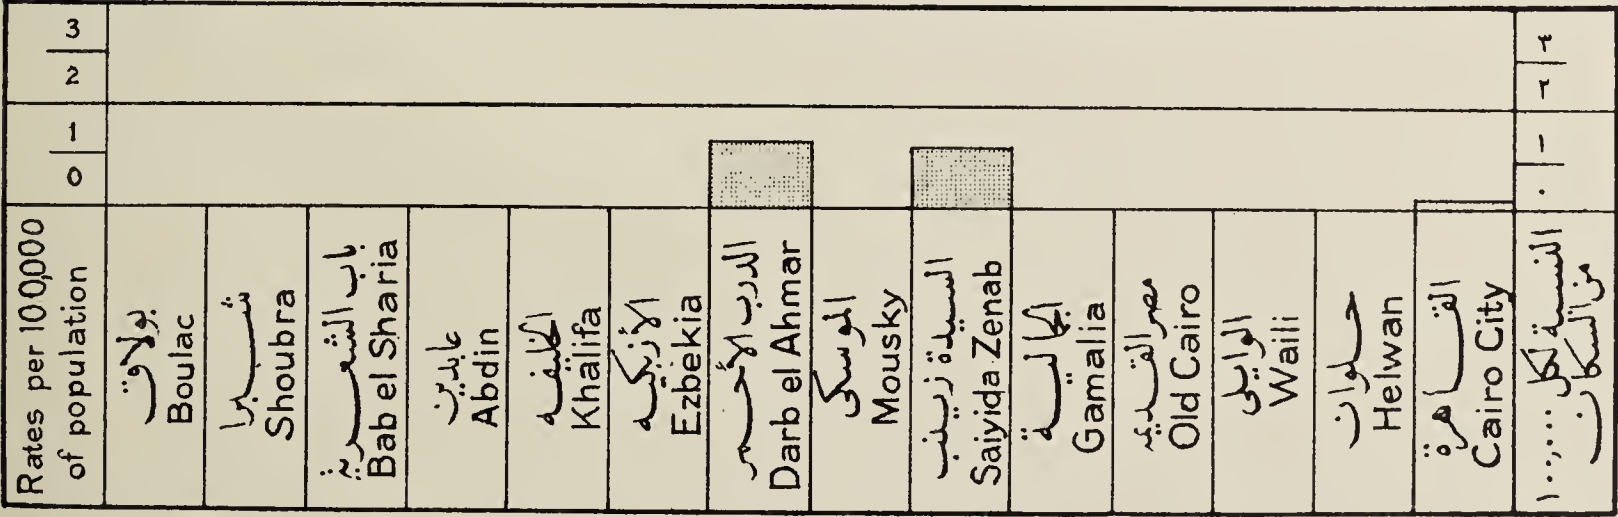 3
2
1
0
Rates per 100,000
of population
بولاق
Boulac
شبرا
Shoubra
باب الشعرية
Bab el Sharia
عابدين
Abdin
الخليفه
Khalifa
الأزبكيه
Ezbekia
الدرب الأحمر
Darb el Ahmar
الموسكى
Mousky
السيدة زينب
Saiyida Zenab
الجمالية
Gamalia
مصر القديمة
Old Cairo
الوايلى
Waili
حلوان
Helwan
القاهرة
Cairo City
٣
٢
١
٠
النسبة لكل ١٠٠,٠٠٠
من السكان